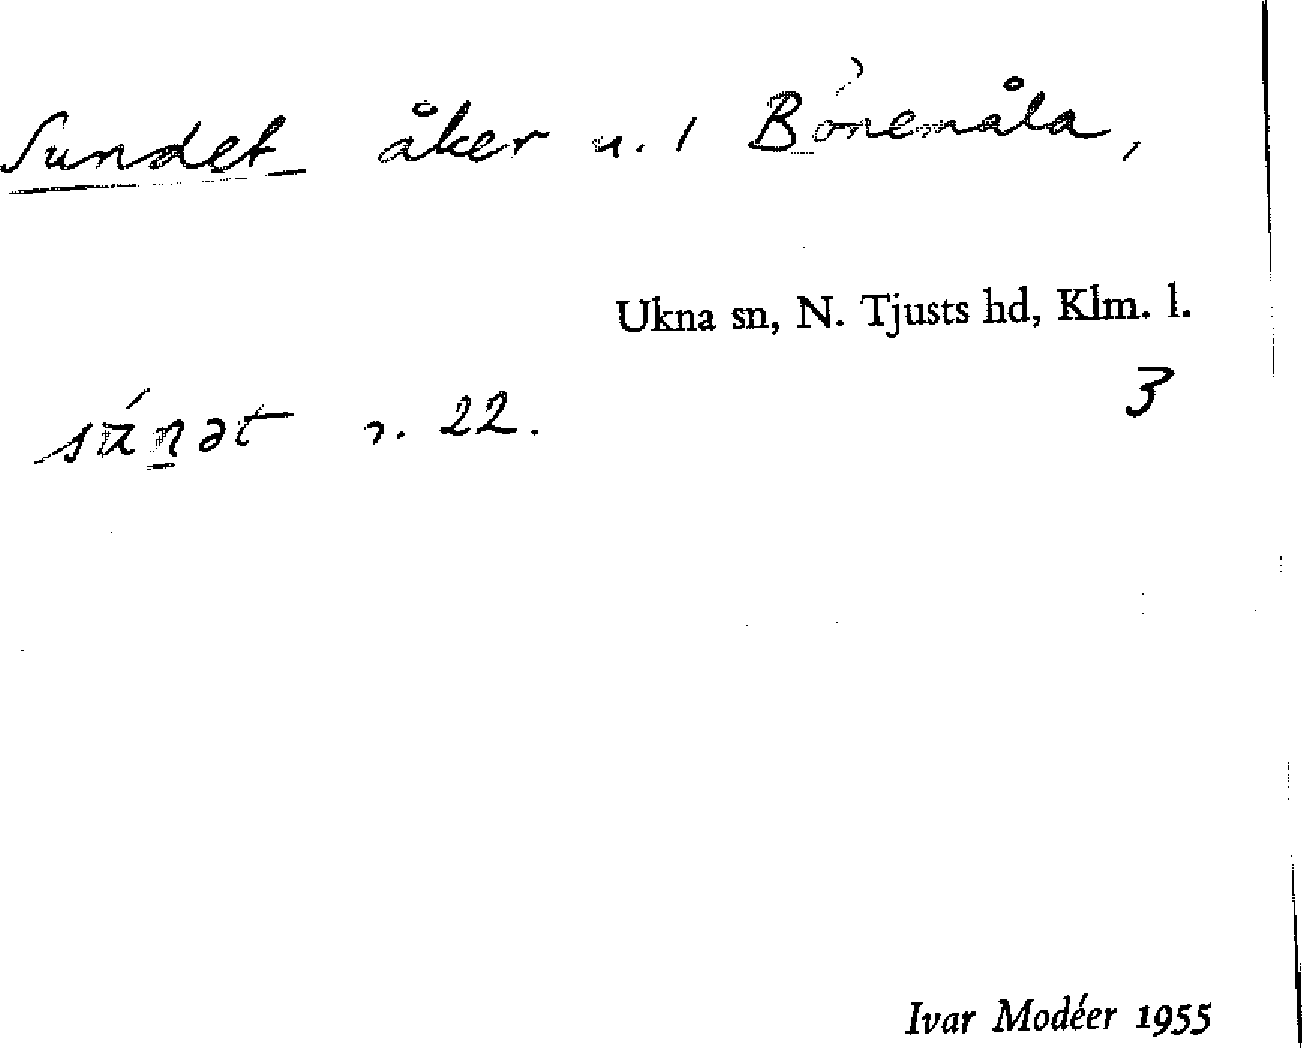 Sundet åker u. 1 Bönemåla,
Ukna sn, N. Tjusts hd, Klm. l.
3
r. 22.
Ivar Modéer 1955